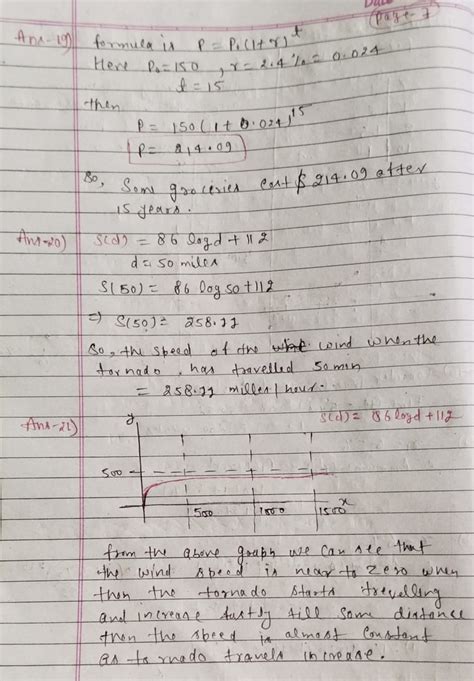 Date
Page-7
Ans-19) formula is P = P₀(1+r)^t
Here P₀=150, r=2.4%=0.024
t=15
then
P= 150(1+0.024)^15
P= 214.09
So, Some groceries cost $214.09 after
15 years.
Ans-20) S(d) = 86 log d + 112
d= 50 miles
S(50) = 86 log 50+112
⇒ S(50)= 258.11
So, the speed of the wind when the
tornado, has travelled 50 min
= 258.11 miller/hour.
Ans-21) y S(d) = 86 log d + 112
500
500 1000 1500 x
from the above graph we can see that
the wind speed is near to zero when
then the tornado starts travelling
and increase fastly till some distance
then the speed is almost constant
as tornado travels increase.